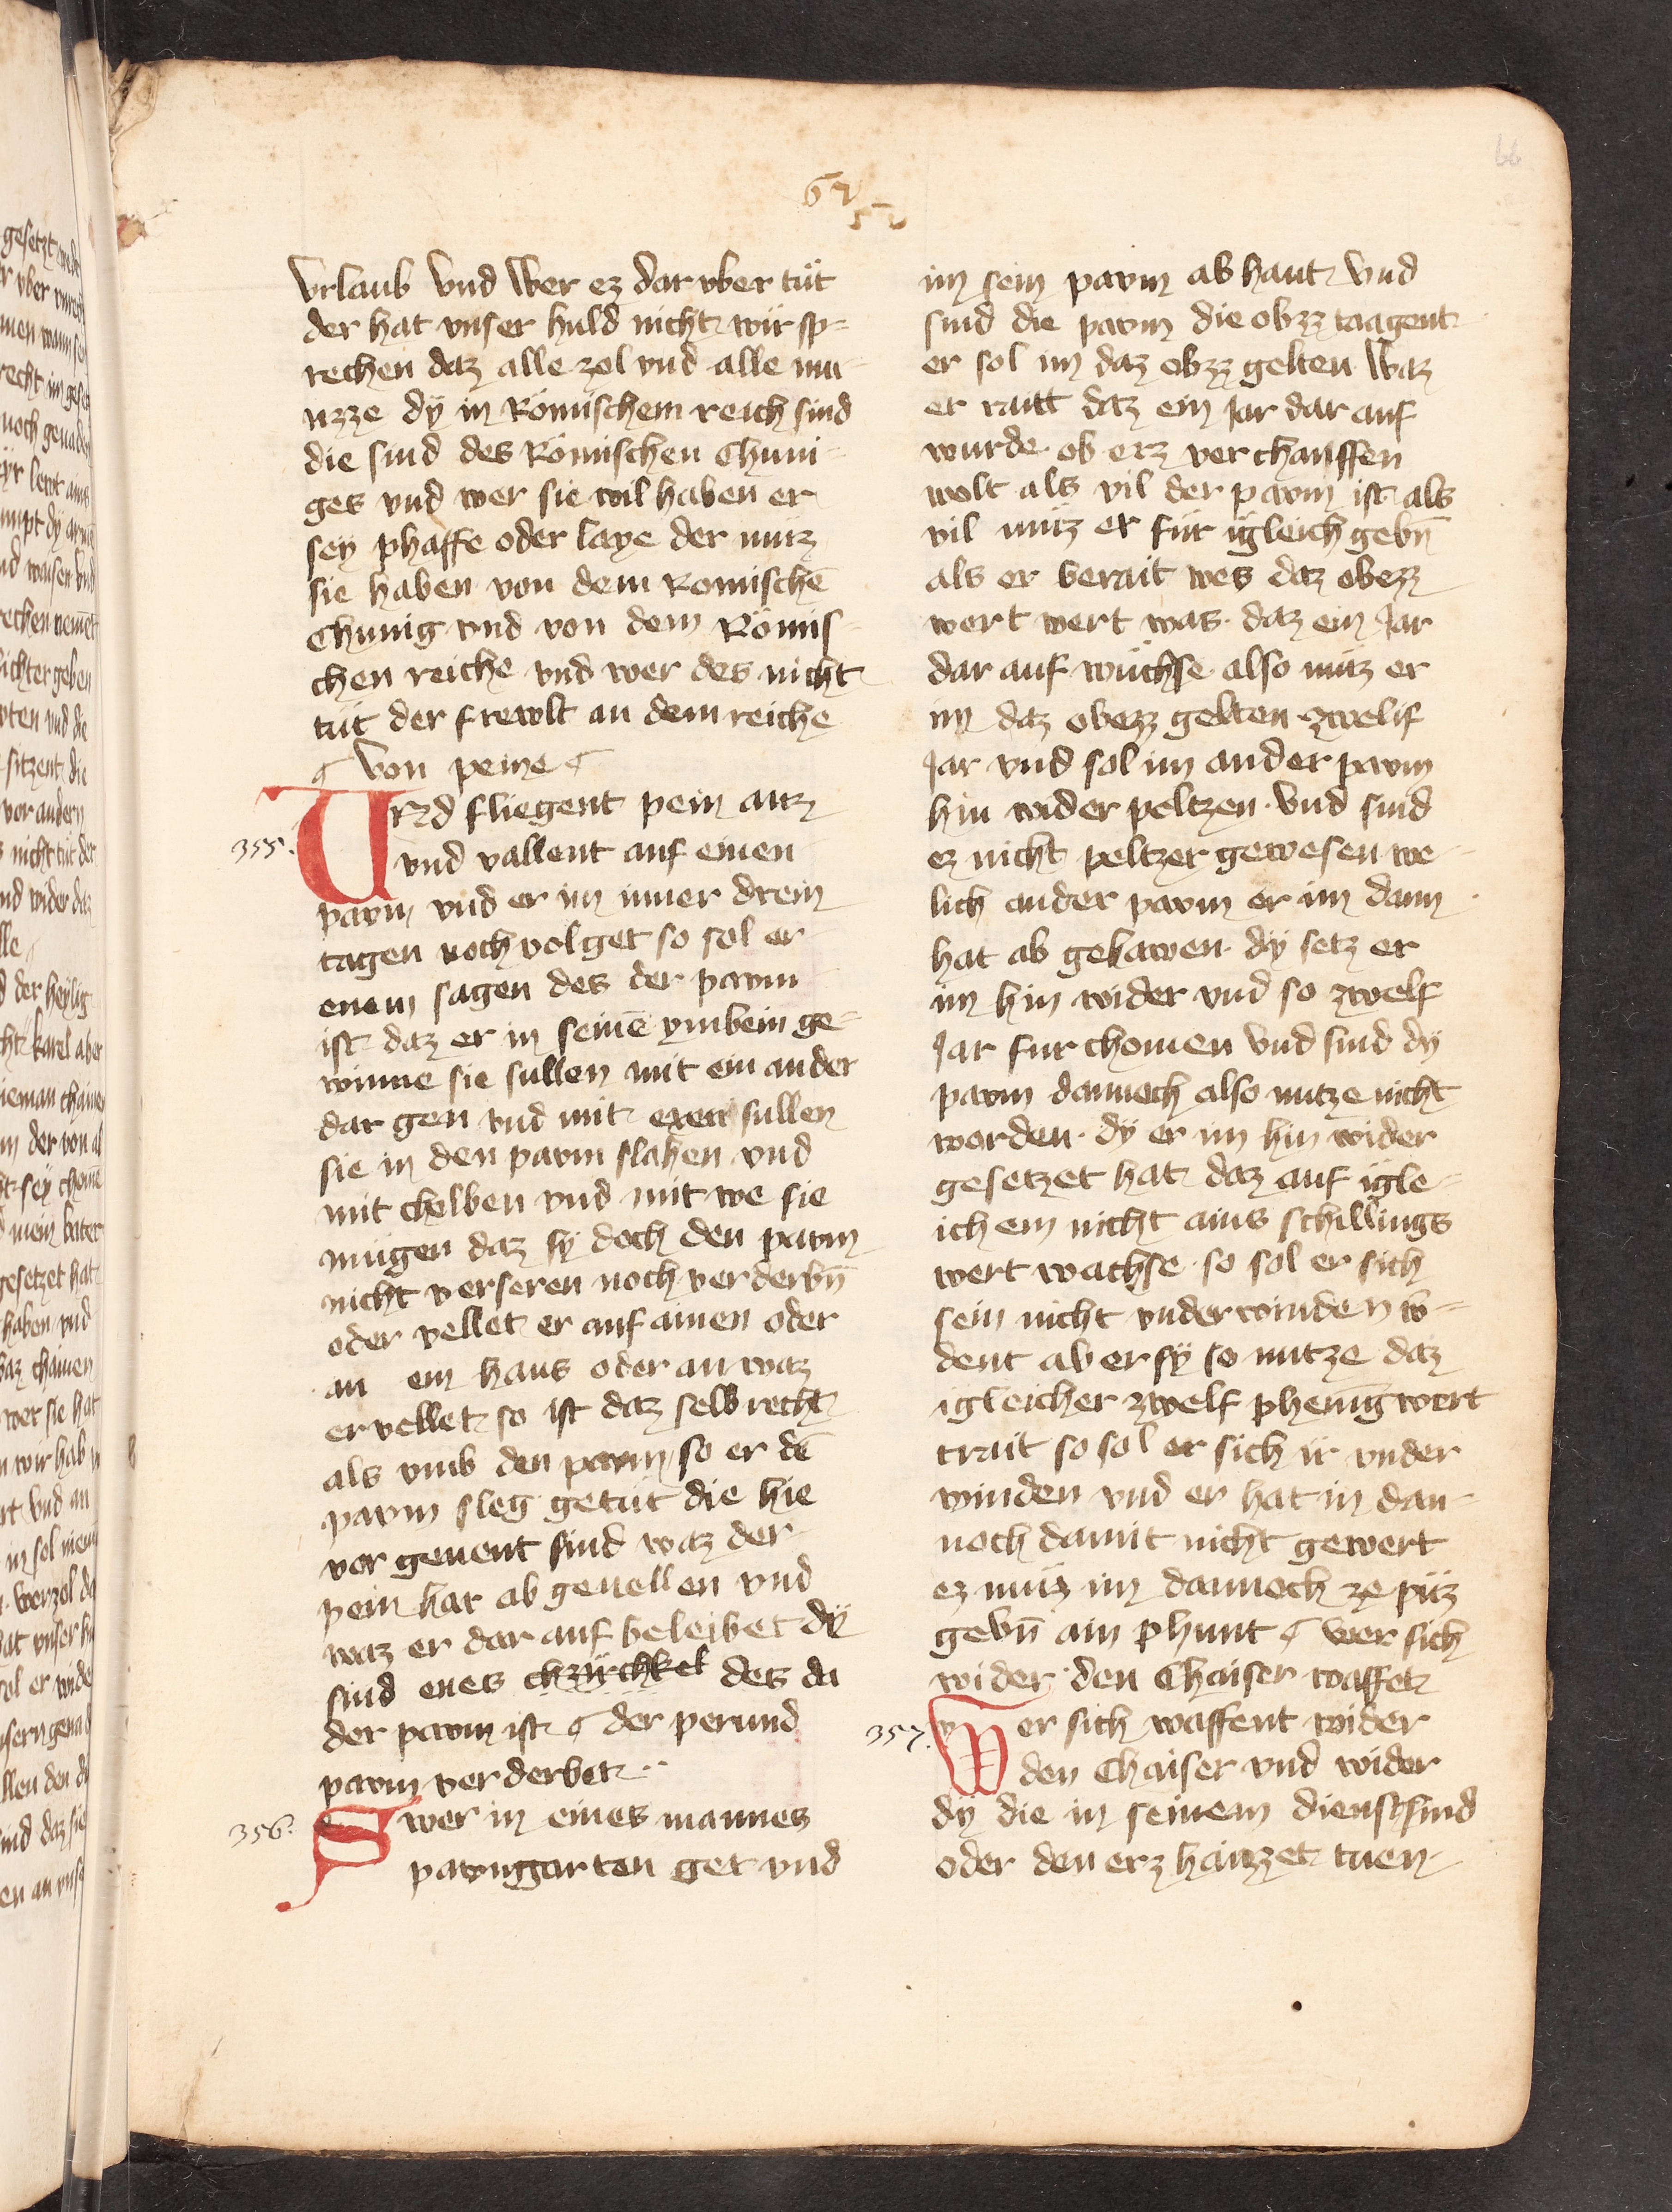 66
urlaub Vnd Wer ez dar vber tüt
der hat vnser huld nicht wir sp=
rechen daz alle zol vnd alle mu=
nzze dÿ in Römischem reich sind
die sind des Römischen Chuni=
ges vnd wer sie wil haben er
seÿ phaffe oder laye der müz
sie haben von dem Romischē
Chunig vnd von dem Römis=
chen reiche vnd wer des nicht
tüt der frewlt an dem reiche
Von peine
355.
Vnd fliegent pein auz
vnd vallent auf einen
pawm vnd er im inner drein
tagen noch volget so sol er
enem sagen des der pawm
ist daz er in seinē ymbein ge=
winne sie sullen mit ein ander
dar gen vnd mit exen sullen
sie in den pawm slahen vnd
mit cholben vnd mit we sie
mugen daz sÿ doch den pawm
nicht verseren noch verderbn̄
oder vellet er auf ainen oder
an ein haus oder an waz
er vellet so ist daz selb recht
als vmb den pawm so er dē
pawm sleg getüt die hie
vor genent sind waz der
pein har ab geuellen vnd
waz er dar auf beleibet dÿ
sind enes chzirchkel des da
der pawm ist der perund
pawm verderbet
356.
Swer in eines mannes
pawngarten get vnd
im sein pawm ab haut Vnd
sind die pawm die obzz taagent
er sol im daz obzz gelten Waz
er raitt daz ein Jar dar auf
wurde ob erz ver chauffen
wolt als vil der pawm ist als
vil müz er für igleich gebn̄
als er berait wes daz obezz
wert wert was daz ein Jar
dar auf wüchse also müz er
im daz obezz gelten zwelif
Jar vnd sol im ander pawm
hin wider peltzen Vnd sind
ez nicht peltzer gewesen we=
lich ander pawm er im dann
hat ab gehawen dÿ setz er
im hin wider vnd so zwelf
Jar fur chomen Vnd sind dÿ
pawm dannoch also nutze nicht
worden dÿ er im hin wider
gesetzet hat daz auf igle=
ich em nicht ains schillings
wert wachse so sol er sich
sein nicht vnderwinden w=
dent aber sÿ so nutze daz
igleicher zwelf phenīg wert
trait so sol er sich ir vnder
winden vnd er hat in dan=
noch damit nicht gewert
ez müz im dannoch ze püz
gebn̄ ain phunt wer sich
wider den Chaiser waffet
357.
Wer sich waffent wider
den Chaiser vnd wider
dÿ die in seinem dienst sind
oder den erz haizzet tuen